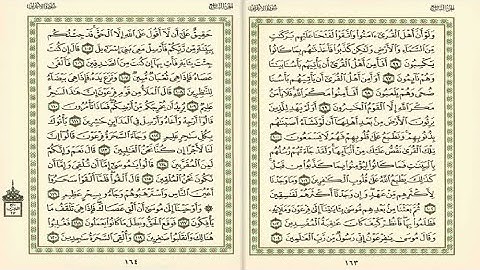 الجزء التاسع
سورة الأعراف
وَلَوْ أَنَّ أَهْلَ الْقُرَىٰ ءَامَنُوا وَاتَّقَوْا لَفَتَحْنَا عَلَيْهِم بَرَكَٰتٍ
مِّنَ السَّمَاءِ وَالْأَرْضِ وَلَٰكِن كَذَّبُوا فَأَخَذْنَٰهُم بِمَا كَانُوا
يَكْسِبُونَ ٩٦ أَفَأَمِنَ أَهْلُ الْقُرَىٰ أَن يَأْتِيَهُم بَأْسُنَا بَيَٰتًا
وَهُمْ نَائِمُونَ ٩٧ أَوَأَمِنَ أَهْلُ الْقُرَىٰ أَن يَأْتِيَهُم بَأْسُنَا
ضُحًى وَهُمْ يَلْعَبُونَ ٩٨ أَفَأَمِنُوا مَكْرَ اللَّهِ فَلَا يَأْمَنُ
مَكْرَ اللَّهِ إِلَّا الْقَوْمُ الْخَٰسِرُونَ ٩٩ أَوَلَمْ يَهْدِ لِلَّذِينَ
يَرِثُونَ الْأَرْضَ مِن بَعْدِ أَهْلِهَا أَن لَّوْ نَشَاءُ أَصَبْنَٰهُم
بِذُنُوبِهِمْ وَنَطْبَعُ عَلَىٰ قُلُوبِهِمْ فَهُمْ لَا يَسْمَعُونَ ١٠٠
تِلْكَ الْقُرَىٰ نَقُصُّ عَلَيْكَ مِنْ أَنبَائِهَا وَلَقَدْ جَاءَتْهُمْ رُسُلُهُم
بِالْبَيِّنَٰتِ فَمَا كَانُوا لِيُؤْمِنُوا بِمَا كَذَّبُوا مِن قَبْلُ
كَذَٰلِكَ يَطْبَعُ اللَّهُ عَلَىٰ قُلُوبِ الْكَٰفِرِينَ ١٠١ وَمَا وَجَدْنَا
لِأَكْثَرِهِم مِّنْ عَهْدٍ وَإِن وَجَدْنَا أَكْثَرَهُمْ لَفَٰسِقِينَ
١٠٢ ثُمَّ بَعَثْنَا مِن بَعْدِهِم مُّوسَىٰ بِـَٔايَٰتِنَا إِلَىٰ فِرْعَوْنَ وَمَلَإِيْهِ
فَظَلَمُوا بِهَا فَانظُرْ كَيْفَ كَانَ عَٰقِبَةُ الْمُفْسِدِينَ ١٠٣
وَقَالَ مُوسَىٰ يَٰفِرْعَوْنُ إِنِّي رَسُولٌ مِّن رَّبِّ الْعَٰلَمِينَ ١٠٤
١٦٣
الجزء التاسع
سورة الأعراف
حَقِيقٌ عَلَىٰ أَن لَّا أَقُولَ عَلَى اللَّهِ إِلَّا الْحَقَّ قَدْ جِئْتُكُم
بِبَيِّنَةٍ مِّن رَّبِّكُمْ فَأَرْسِلْ مَعِيَ بَنِي إِسْرَٰءِيلَ ١٠٥ قَالَ إِن كُنتَ
جِئْتَ بِـَٔايَةٍ فَأْتِ بِهَا إِن كُنتَ مِنَ الصَّٰدِقِينَ ١٠٦ فَأَلْقَىٰ
عَصَاهُ فَإِذَا هِيَ ثُعْبَانٌ مُّبِينٌ ١٠٧ وَنَزَعَ يَدَهُ فَإِذَا هِيَ بَيْضَاءُ
لِلنَّٰظِرِينَ ١٠٨ قَالَ الْمَلَأُ مِن قَوْمِ فِرْعَوْنَ إِنَّ هَٰذَا لَسَٰحِرٌ
عَلِيمٌ ١٠٩ يُرِيدُ أَن يُخْرِجَكُم مِّنْ أَرْضِكُمْ فَمَاذَا تَأْمُرُونَ ١١٠
قَالُوا أَرْجِهْ وَأَخَاهُ وَأَرْسِلْ فِي الْمَدَائِنِ حَٰشِرِينَ ١١١ يَأْتُوكَ
بِكُلِّ سَٰحِرٍ عَلِيمٍ ١١٢ وَجَاءَ السَّحَرَةُ فِرْعَوْنَ قَالُوا إِنَّ
لَنَا لَأَجْرًا إِن كُنَّا نَحْنُ الْغَٰلِبِينَ ١١٣ قَالَ نَعَمْ وَإِنَّكُمْ
لَمِنَ الْمُقَرَّبِينَ ١١٤ قَالُوا يَٰمُوسَىٰ إِمَّا أَن تُلْقِيَ وَإِمَّا أَن
نَّكُونَ نَحْنُ الْمُلْقِينَ ١١٥ قَالَ أَلْقُوا فَلَمَّا أَلْقَوْا سَحَرُوا
أَعْيُنَ النَّاسِ وَاسْتَرْهَبُوهُمْ وَجَاءُو بِسِحْرٍ عَظِيمٍ ١١٦
وَأَوْحَيْنَا إِلَىٰ مُوسَىٰ أَنْ أَلْقِ عَصَاكَ فَإِذَا هِيَ تَلْقَفُ مَا
يَأْفِكُونَ ١١٧ فَوَقَعَ الْحَقُّ وَبَطَلَ مَا كَانُوا يَعْمَلُونَ ١١٨ فَغُلِبُوا
هُنَالِكَ وَانقَلَبُوا صَٰغِرِينَ ١١٩ وَأُلْقِيَ السَّحَرَةُ سَٰجِدِينَ ١٢٠
١٦٤